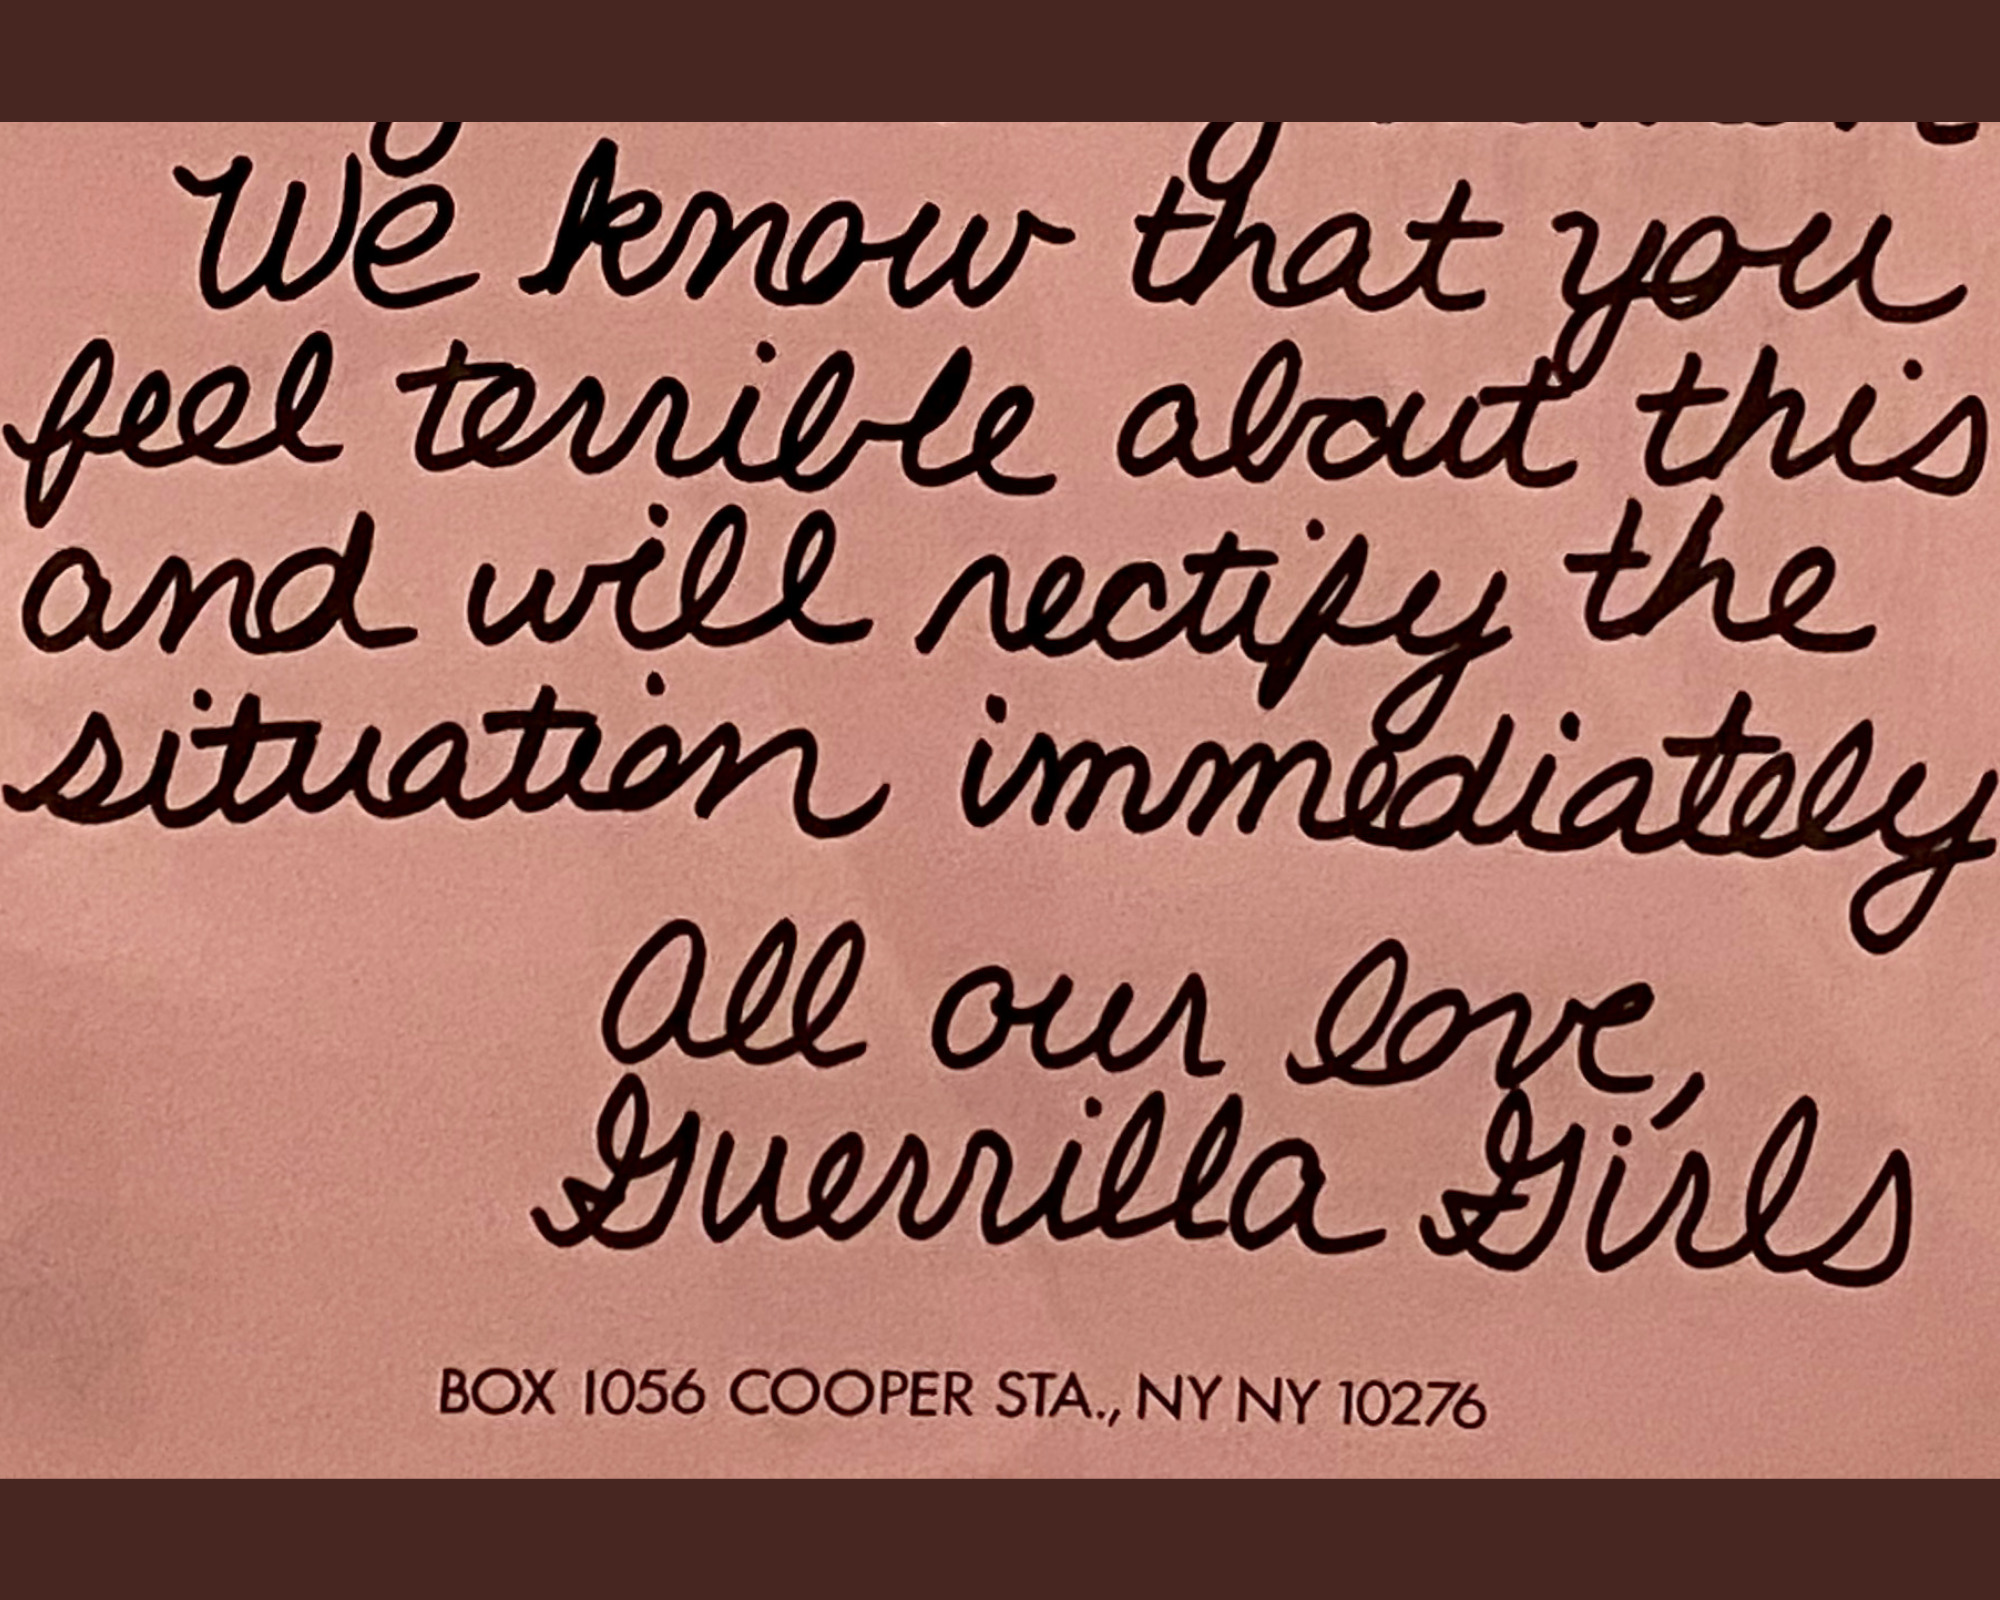 We know that you
feel terrible about this
and will rectify the
situation immediately
All our love,
Guerrilla Girls
BOX 1056 COOPER STA., NY NY 10276